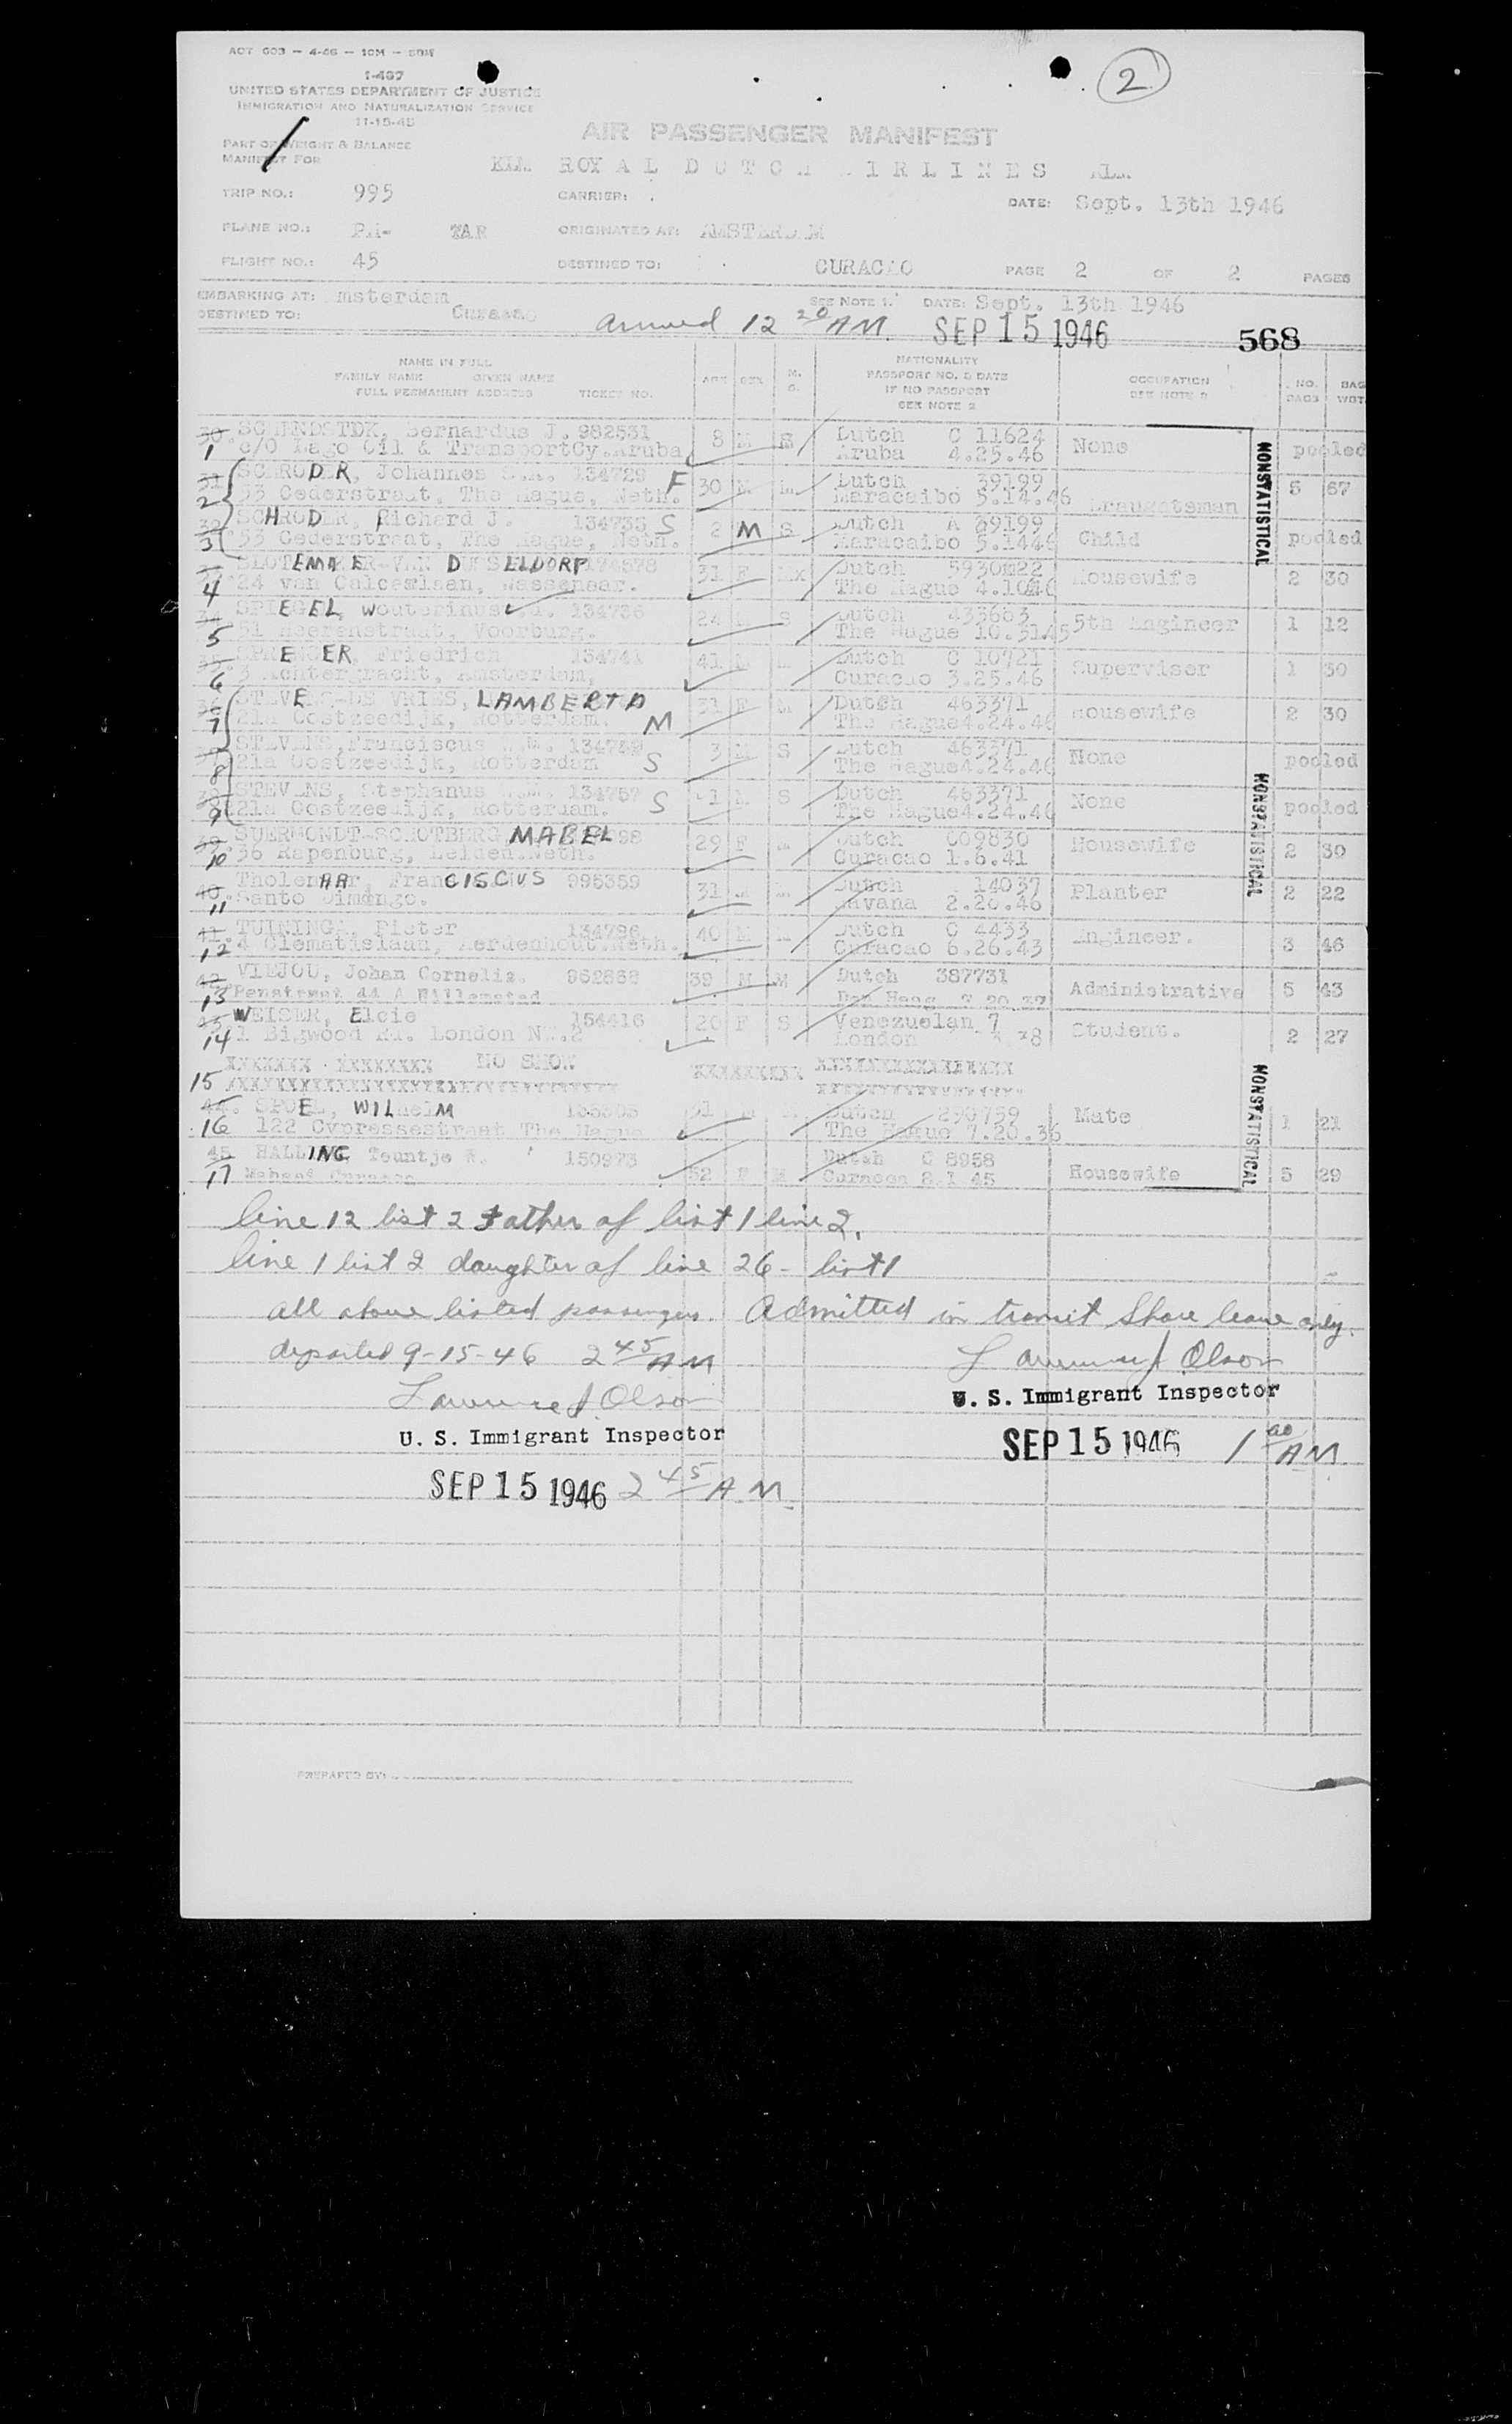 ACT 603 — 4-46 — 10M — SDH
2
I-467
UNITED STATES DEPARTMENT OF JUSTICE
IMMIGRATION AND NATURALIZATION SERVICE
11-15-45
AIR PASSENGER MANIFEST
PART OF WEIGHT & BALANCE
MANIFEST FOR
KLM ROYAL DUTCH AIRLINES KLM
TRIP NO.: 995 CARRIER: DATE: Sept. 13th 1946
PLANE NO.: PH- TAR ORIGINATED AT: AMSTERDAM
FLIGHT NO.: 45 DESTINED TO: CURACAO PAGE 2 OF 2 PAGES
EMBARKING AT: msterdam SEE NOTE 1. DATE: Sept. 13th 1946
DESTINED TO: Curacao arrived 12 20 AM SEP 15 1946 568
NAME IN FULL
FAMILY NAME GIVEN NAME
FULL PERMANENT ADDRESS TICKET NO. AGE SEX M. NATIONALITY
PASSPORT NO. & DATE
IF NO PASSPORT
SEE NOTE 2 OCCUPATION NO. BAGS BAG WGT.
30. Bernardus J. 982531 8 M S Dutch C 11624 None pooled
1 c/O Lago Oil & TransportCy.Aruba Aruba 4.25.46
31 SCHRODER, Johannes 134729 F 30 M M Dutch 39199 Draughtsman 5 67
2 53 Cederstraat, The Hague, Neth. Maracaibo 5.14.46
32 SCHRODER, Richard J. 134735 S 2 M S Dutch A 39199 Child pooled
3 53 Cederstraat, The Hague, Neth. Maracaibo 5.1446
SLOTEMAKER-VAN DUSSELDORP 31 F Dutch Housewife 2 30
4 24 van Calcarlaan, Wassenaar. The Hague
SPIEGEL, Wouterinus 134736 24 M S Dutch 433663 5th Engineer 1 12
5 51 Heerenstraat, Voorburg. The Hague 10.31.45
SPRENGER, Friedrich 134741 41 M M Dutch C 10721 Superviser 1 30
6 Achtergracht, Amsterdam, Curacao 3.25.46
STEVENS-DE VRIES, LAMBERTA 31 F M Dutch 463371 Housewife 2 30
7 21a Oostzeedijk, Rotterdam. M The Hague4.24.46
STEVENS, Franciscus 3 M S Dutch 463371 None pooled
8 21a Oostzeedijk, Rotterdam S The Hague4.24.46
STEVENS, Stephanus 134757 S 1 M S Dutch 463371 None pooled
9 21a Oostzeedijk, Rotterdam. The Hague4.24.46
39. SUERMONDT-SCHOTBERG MABEL 29 F M Dutch C09830 Housewife 2 30
10 36 Rapenburg, Leiden.Neth. Curacao 1.6.41
40. Tholenaar, FranCISCUS 995359 31 M M Dutch 14037 Planter 2 22
11 Santo Dimingo. Havana 2.20.46
41. TUININGA, Pieter 134796 40 M M Dutch C 4433 Engineer. 3 46
12 4 Clematislaan, Aerdenhout.Neth. Curacao 6.26.43
42. VIEJOU, Johan Cornelis. 39 M M Dutch 387731 Administrative 5 43
13 Penstraat 44 A Willemsted Den Haag
43. WEISER, Elcie 154416 20 F S Venezuelan 7 Student. 2 27
14 1 Bigwood Rd. London London
XXXXXXX XXXXXXXX NO SHOW XXXXXXXX XXXXXXXXXXXXXXXXX
15 XXXXXXXXXXXXXXXXXXXXXXXXXXXXXXXXXX XXXXXXXXXXXXXXXXX
44. SPOEL, WILhelM Dutch 290759 Mate 1 21
16 122 Cypressestraat The Hague The Hague 7.20.36
45 HALLING Teuntje 150973 52 F M Dutch C 8958 Housewife 5 29
17 Curacao 8.1 45
NONSTATISTICAL
NONSTATISTICAL
NONSTATISTICAL
line 12 list 2 Father of list 1 line 2.
line 1 list 2 daughter of line 26 - list 1
all above listed passengers. Admitted in transit Shore leave only.
departed 9-15-46 2 45 AM
Lawrence J Olson
Lawrence J. Olson
U. S. Immigrant Inspector
U. S. Immigrant Inspector
SEP 15 1946 1 00 AM
SEP 15 1946 2 45 AM.
PREPARED BY: